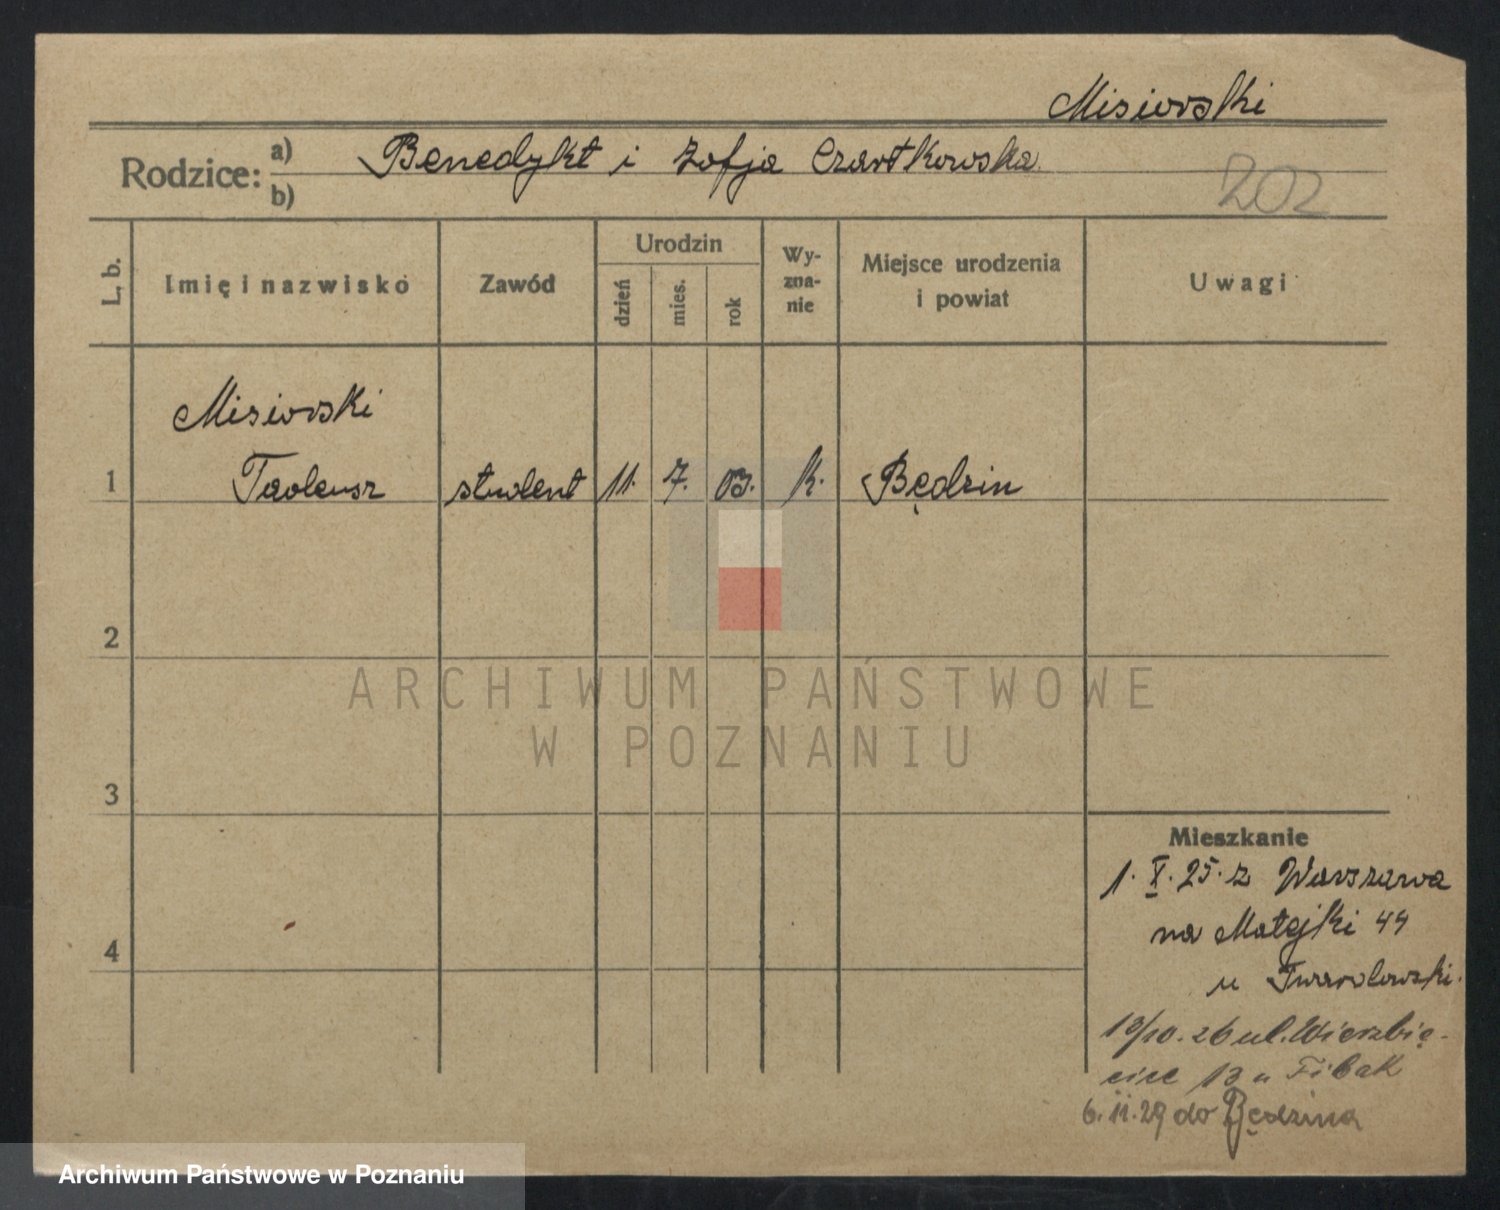 Misiorski
Rodzice: a) Benedykt i Zofja Czartkowska
b)
202
L. b.
Imię i nazwisko
Zawód
Urodzin
dzień
mies.
rok
Wy-
zna-
nie
Miejsce urodzenia
i powiat
Uwagi
Misiorski
1 Tadeusz student 11. 7. 03. k. Będzin
2
3
4
Mieszkanie
1. X. 25. z Warszawa
na Matejki 44
u Twardowski.
19/10. 26 ul. Wierzbię-
cice 13 u Fibak
6. 11. 29 do Będzina
ARCHIWUM PAŃSTWOWE
W POZNANIU
Archiwum Państwowe w Poznaniu